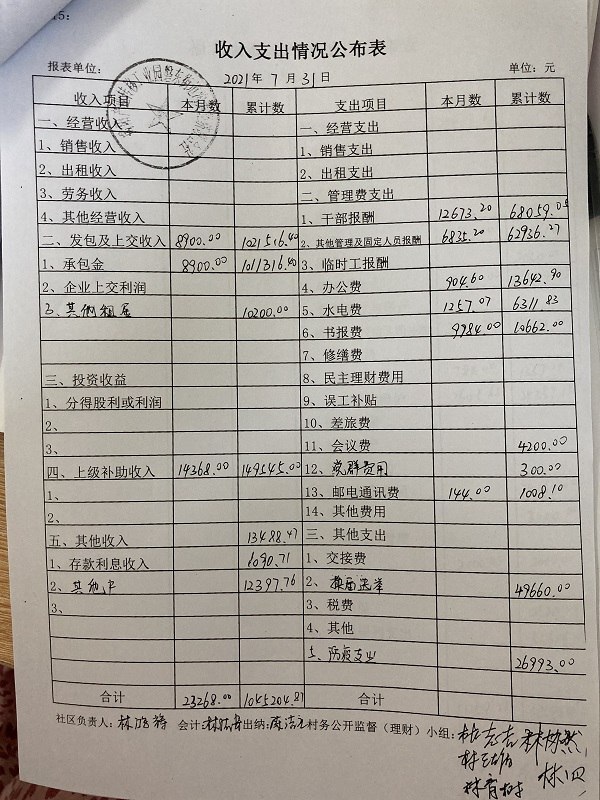 收入支出情况公布表
报表单位： 2021年 7 月 31 日 单位：元
收入项目 本月数 累计数 支出项目 本月数 累计数
一、经营收入 一、经营支出
1、销售收入 1、销售支出
2、出租收入 2、出租支出
3、劳务收入 二、管理费支出
4、其他经营收入 1、干部报酬 12673.20 68059.05
二、发包及上交收入 8900.00 1021516.40 2、其他管理及固定人员报酬 6835.20 62936.27
1、承包金 8900.00 1011316.40 3、临时工报酬
2、企业上交利润 4、办公费 904.60 13642.90
3、其他租金 10200.00 5、水电费 1257.07 6311.83
6、书报费 9984.00 10662.00
7、修缮费
三、投资收益 8、民主理财费用
1、分得股利或利润 9、误工补贴
2、 10、差旅费
3、 11、会议费 4200.00
四、上级补助收入 14368.00 149545.00 12、党群费用 300.00
1、 13、邮电通讯费 144.00 1008.10
2、 14、其他费用
五、其他收入 13488.47 三、其他支出
1、存款利息收入 1090.71 1、交接费
2、其他 12397.76 2、 49660.00
3、 3、税费
4、其他
5、防疫支出 26993.00
合计 23268.00 1045204.87 合计
社区负责人： 会计： 出纳： 村务公开监督（理财）小组：